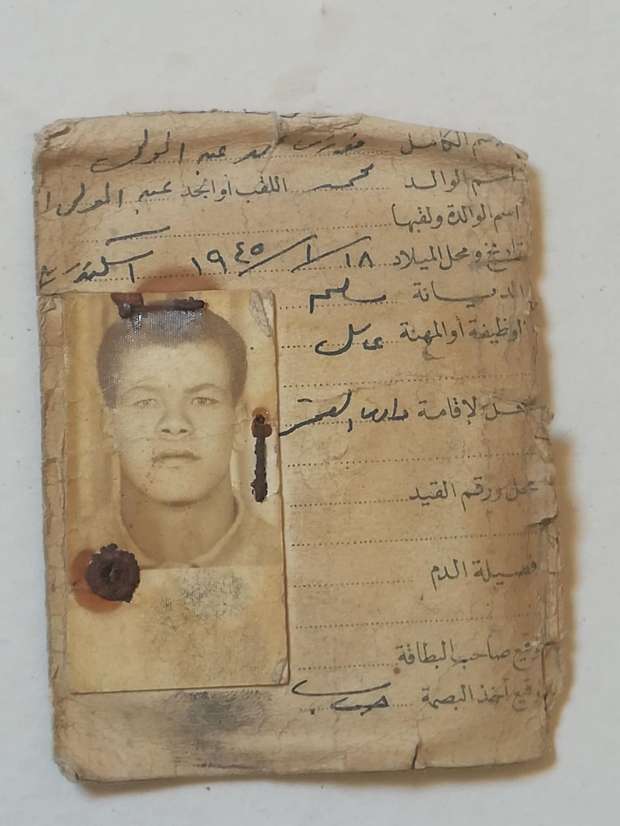 الاسم الكامل عبد المولى
اسم الوالد محمد اللقب أو الجد عبد المولى
اسم الوالدة ولقبها
تاريخ ومحل الميلاد ١٨ / ١ / ١٩٤٥ اسكندرية
الديانة مسلم
الوظيفة أو المهنة عامل
محل الإقامة
محل ورقم القيد
فصيلة الدم
توقيع صاحب البطاقة
توقيع آخذ البصمة